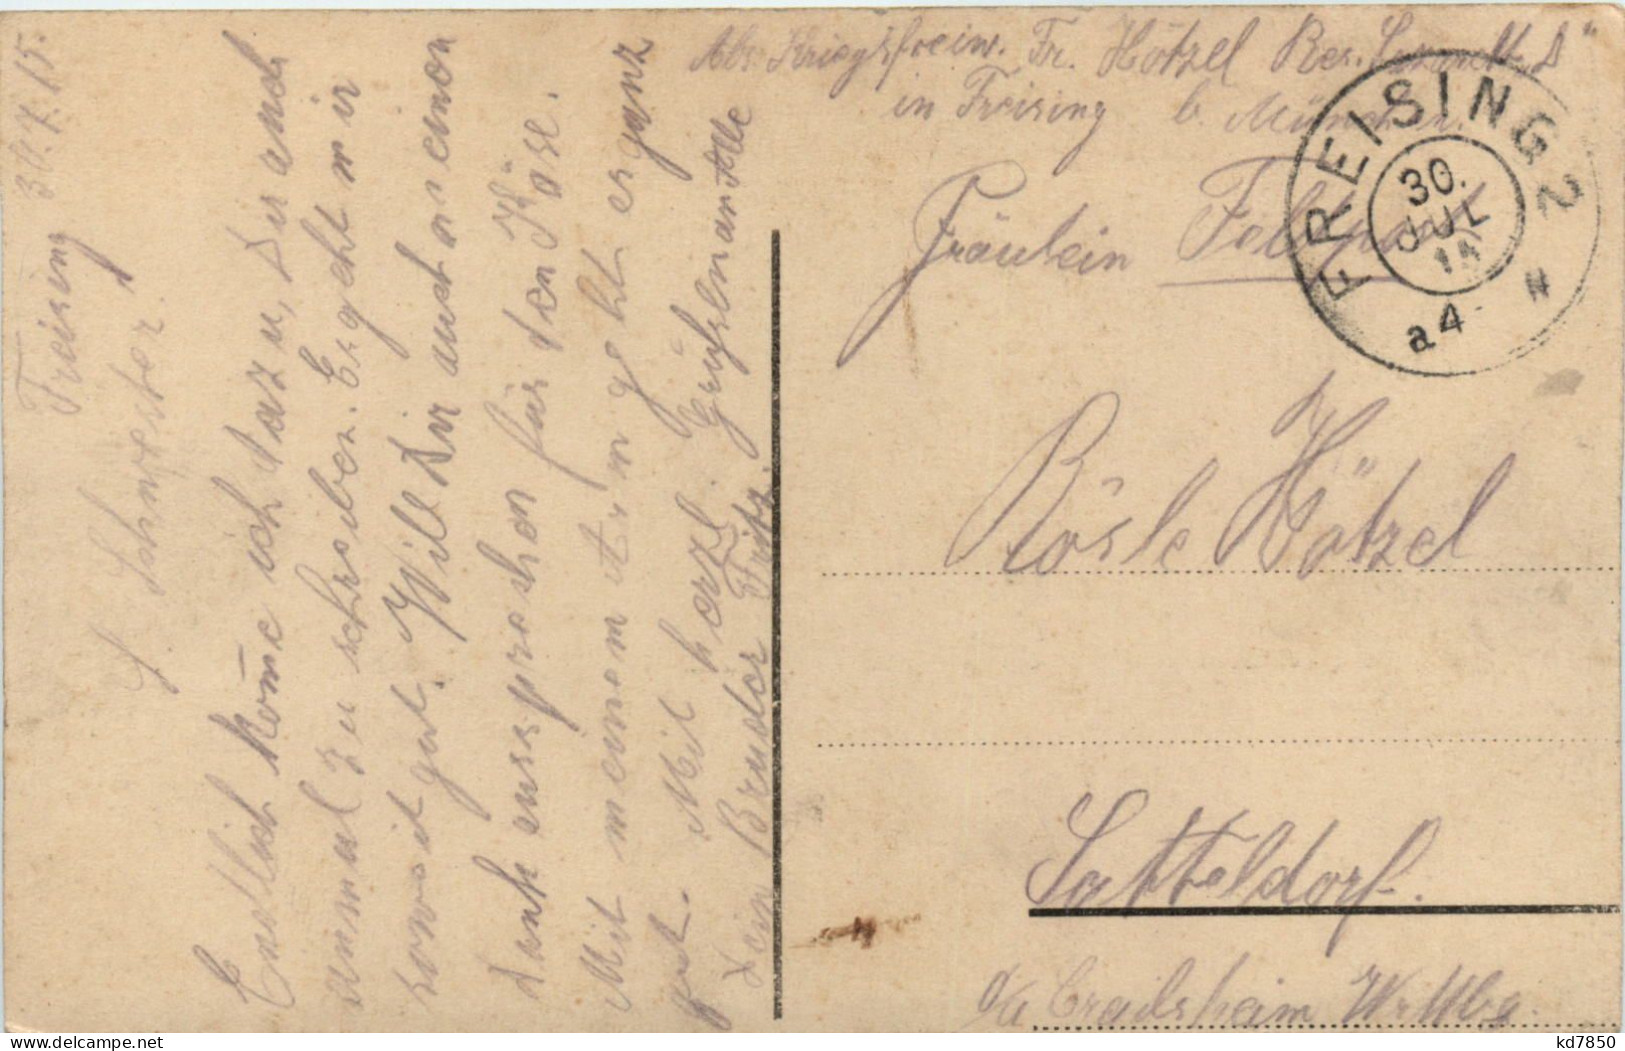 Freising 30.7.15.
l. Schwester!
Endlich kom̄e ich dazu, Dir auch
einmal zu schreiben. Es geht mir
soweit gut. Will Dir auch meinen
Dank aussprechen für den Käse.
Mit meinem Arm geht es ganz
gut. Mit herzl. Grüßen an Alle
Dein Bruder Fritz.
Abs. Kriegsfreiw. Fr. Hötzel Res. Lazarett „A"
in Freising b. München.
FREISING 2
30.
JUL
15
a4-
Fräulein
Rösle Hötzel
Satteldorf.
o/a Crailsheim Wrttbg.
kd7850